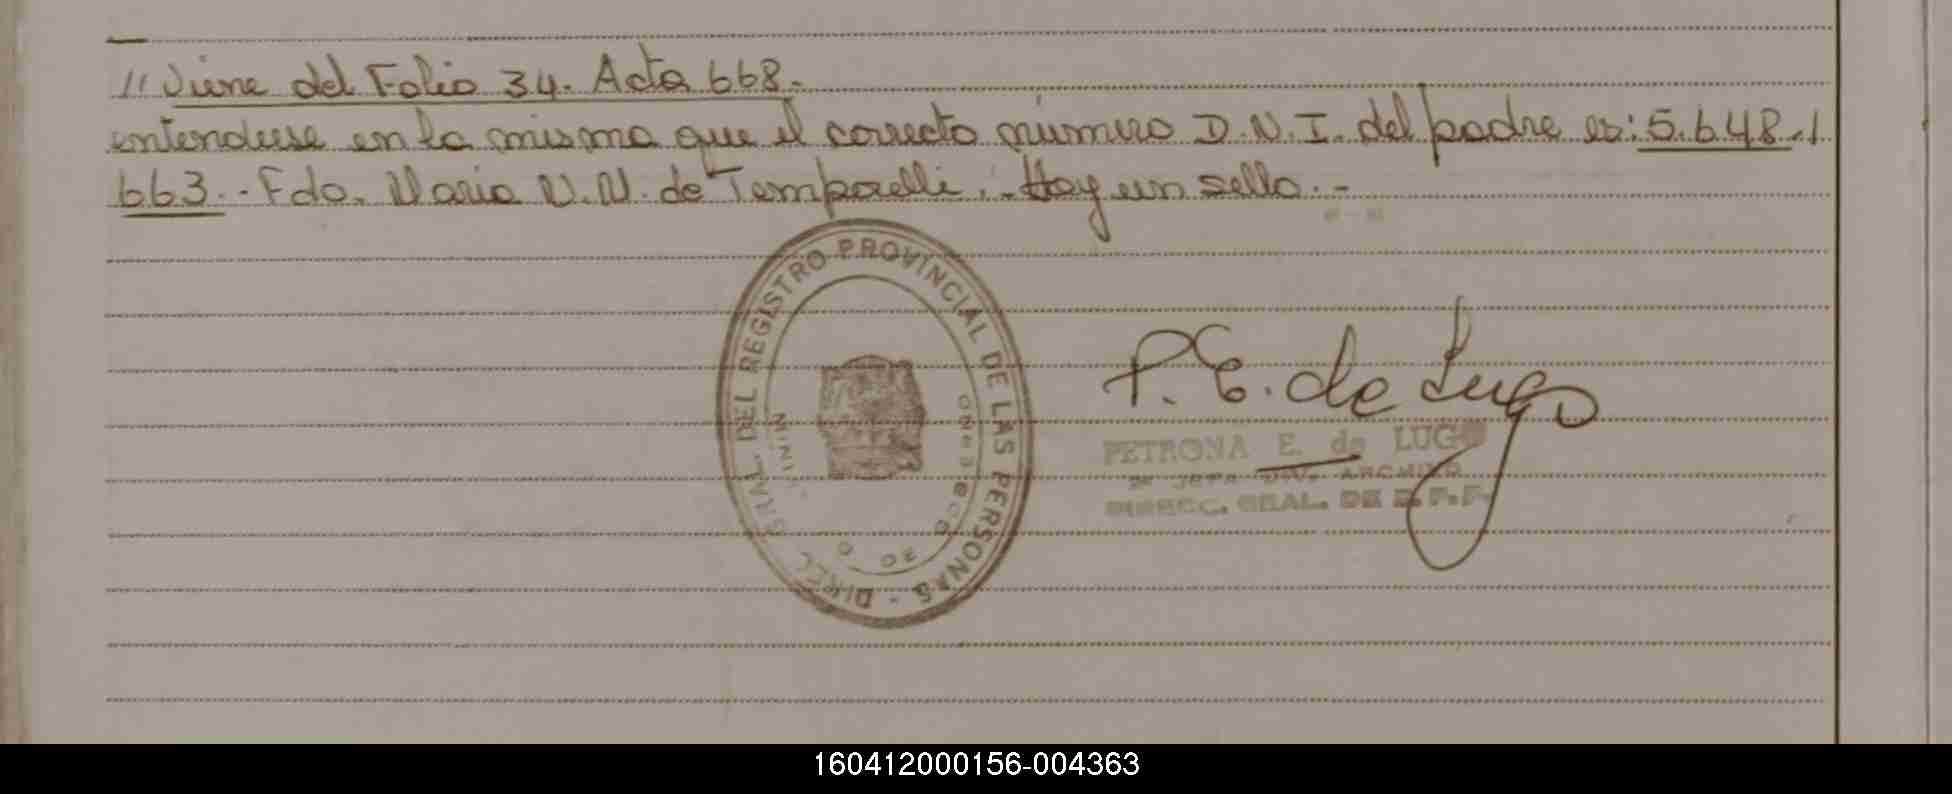 // Viene del Folio 34. Acta 668.-
entenderse en la misma que el correcto número D.N.I. del padre es: 5.648.1
663.- Fdo. Maria N.N. de Temporelli.- Hay un sello.-
DIREC. GRAL. DEL REGISTRO PROVINCIAL DE LAS PERSONAS -
MINIS
P. E. de Lugo
PETRONA E. de LUGO
2ª JEFA DIV. ARCHIVO
DIREC. GRAL. DE R.P.P.
160412000156-004363